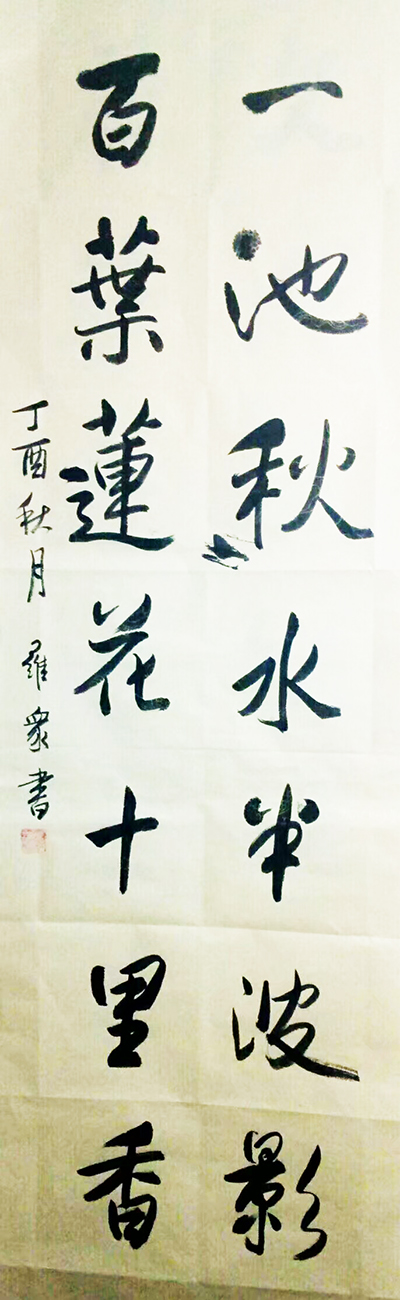 一池秋水半波影
百葉蓮花十里香
丁酉秋月 羅衆書